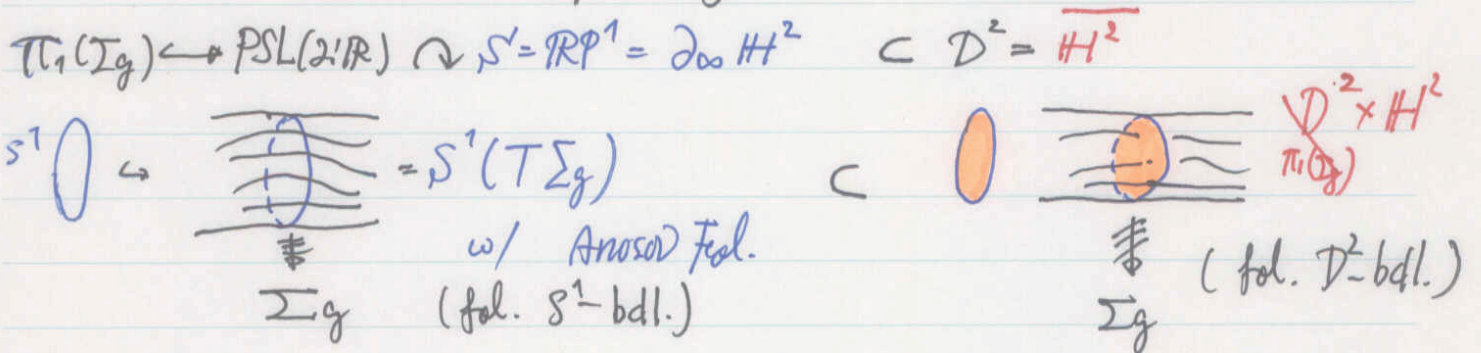 π₁(Σg) ↪ PSL(2;ℝ) ↷ S¹ = ℝP¹ = ∂∞ ℍ² ⊂ D² = \overline{ℍ²}
S¹ ↪ = S¹(TΣg) ⊂ D² × ℍ²
π₁(Σg)
w/ Anosov Fol.
Σg (fol. S¹-bdl.) Σg (fol. D²-bdl.)